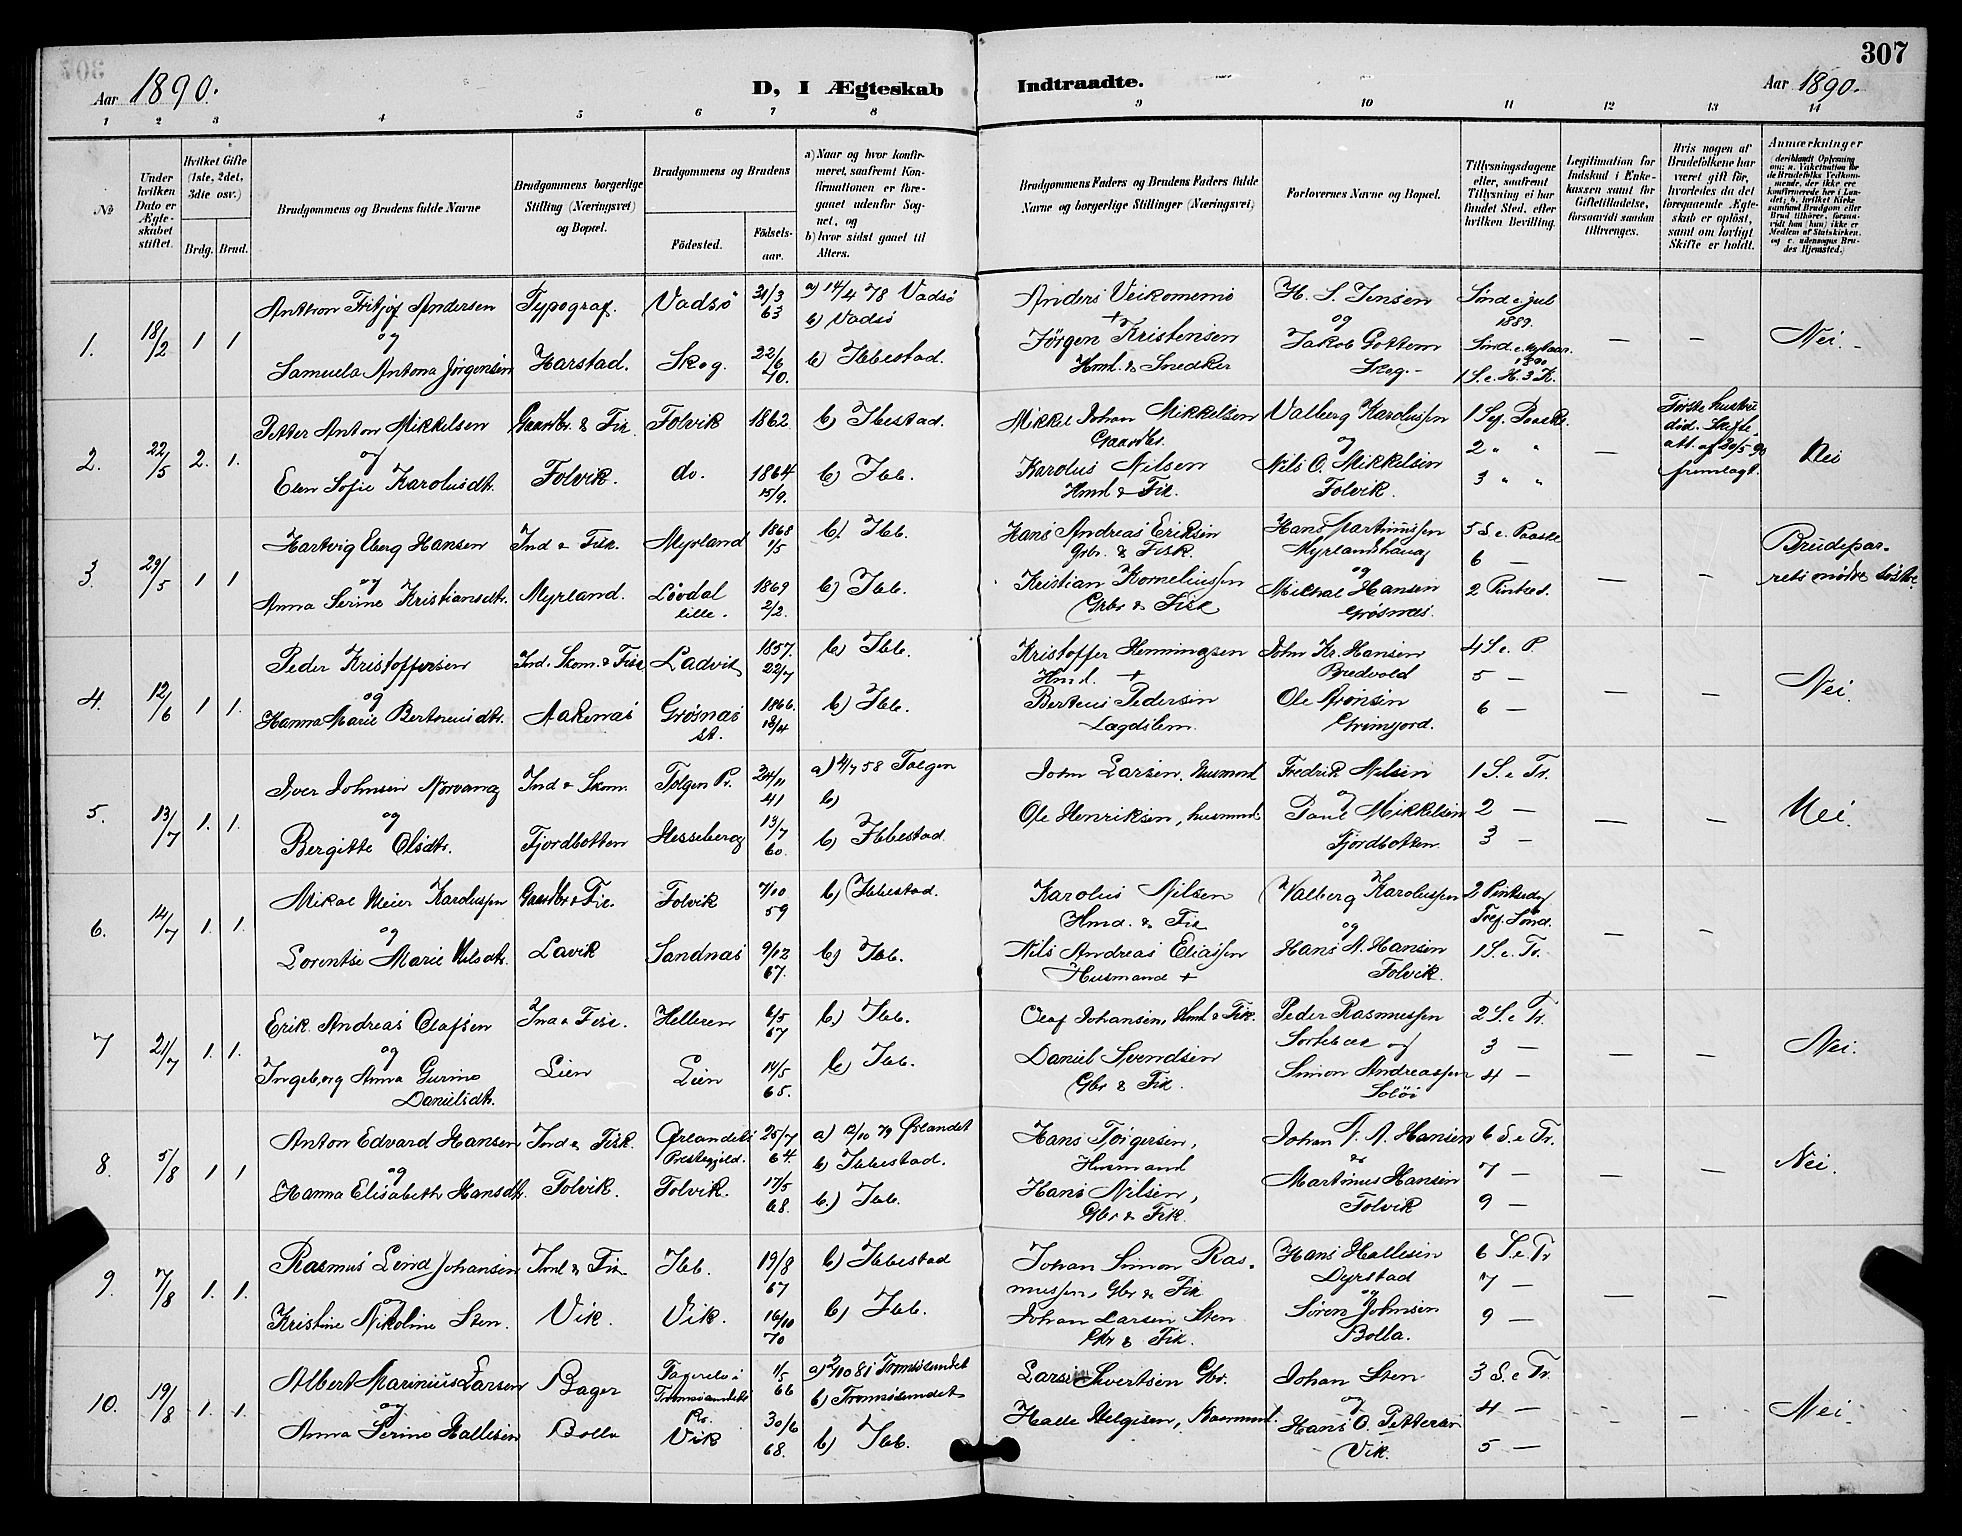 307
Aar 1890.
D, I Ægteskab Indtraadte.
Aar 1890.
1 2 3 4 5 6 7 8 9 10 11 12 13 14
№
Under hvilken Dato er Ægteskabet stiftet.
Hvilket Gifte (1ste, 2det, 3die osv.)
Brdg. Brud.
Brudgommens og Brudens fulde Navne
Brudgommens borgerlige Stilling (Næringsvei) og Bopæl.
Brudgommens og Brudens
Födested. Födselsaar.
a) Naar og hvor konfirmeret, saafremt Konfirmationen er foregaaet udenfor Sognet, og
b) hvor sidst gaaet til Alters.
Brudgommens Faders og Brudens Faders fulde Navne og borgerlige Stillinger (Næringsvei)
Forlovernes Navne og Bopæl.
Tillysningsdagene eller, saafremt Tillysning ei har fundet Sted, efter hvilken Bevilling.
Legitimation for Indskud i Enkekassen samt for Giftetilladelse, forsaavidt saadan tiltrænges.
Hvis nogen af Brudefolkene har været gift för, hvorledes da det foregaaende Ægteskab er oplöst, samt om lovligt Skifte er holdt.
Anmærkninger
(deriblandt Oplysning om: a. Vaksination for de Brudefolks Vedkommende, der ikke ere konfirmerede her i Landet; b. hvilket Kirkesamfund Brudgom eller Brud tilhörer, forsaavidt han (hun) ikke er Medlem af Statskirken, og c. udensogns Brudes Hjemsted.)
1. 18/2 1 1 Anthon Fritjof Andersen Typograf. Vadsö 31/3 63 a) 14/4 78 Vadsö b) Vadsö Anders + H. S. Jensen Sönd e. jul 1889.
og
Samuela Antona Jörgensen Harstad. Skog. 22/6 70. b) Ibbestad. Jörgen Kristensen Hmd. & Snedker og Jakob Gottem Skog. Sönd. e. Nytaar. 1890 1 S. e. H. 3 K. — — Nei.
2. 22/5 2. 1. Petter Anton Mikkelsen Gaardbr. & Fis. Folvik 1862 b) Ibestad. Mikkel Johan Mikkelsen Gaardbr. Valberg Karolussen 1 S. e. Paaske Förste hustru död. Skifte att. af 20/5 90 fremlagt.
og
Elen Sofie Karolusdt. Folvik. do. 1864 15/9. b) Ibb. Karolus Nilsen Hmd & Fis. og Nils O. Mikkelsen Folvik. 2 " " 3 " " — Nei
3. 29/5 1 1 Hartvig Eberg Hansen Ind & Fisk. Myrland 1868 1/5 b). Ibb. Hans Andreas Eriksen Grbr. & Fisk. Hans Martinussen Myrlandshaug 5 S. e. Paaske
og
Anna Serine Kristiansdtr. Myrland. Lövdal lille. 1869 2/2. b) Ibb. Kristian Korneliussen Grbr & Fisk og Mikal Hansen Grösnæs. 6 — 2 Pintsed. — — Brudeparrets mödre söstre
4. 12/6 1 1. Peder Kristoffersen Ind. Skom. & Fisk Ladvik 1857. 22/7 b) Ibb. Kristoffer Henningsen Hmd. + John Kr. Hansen Bredvold 4 S. e. P
og
Hanna Marie Berteusdtr. Aakenæs Grösnæs st. 1866. 18/4 b) Ibb. Berteus Pedersen Lægdslem. Ole Arönsen Grimjord. 5 — 6 — — — Nei.
5. 13/7 1. 1. Iver Johnsen Norvang Ind & Skom. Tolgen Pr. 24/11 41 a) 4/7 58 Tolgen b) John Larsen, Husmnd Fredrik Nilsen 1 S. e Tr.
og
Bergitte Olsdtr. Fjordbotten Hesseberg 13/7 60. b) Ibbestad. Ole Henriksen, husmnd. og Paul Mikkelsen Fjordbotten 2 — 3 — — — Nei.
6. 14/7 1. 1. Mikal Meier Karolussen Gaardbr. & Fis. Folvik 7/10 59 b) Ibbestad. Karolus Nilsen Hmd. & Fis. Valberg Karolussen 2 Pintsedag Tref. Sönd.
og
Lorentse Marie Nilsdtr. Lavik Sandnæs 9/12 67. b) Ibb. Nils Andreas Eliassen Husmand + og Hans A. Hansen Folvik. 1 S. e. Tr. — —
7 21/7 1. 1. Erik Andreas Olafsen Ind & Fisk. Helleren 6/5 67 b.) Ibb. Olaf Johansen, Hmd & Fisk. Peder Rasmussen Sortebær og 2 S. e Tr.
og
Ingeborg Anna Gurine Danielsdtr. Lien Lien 14/5 65. b) Ibb. Daniel Svendsen Gbr & Fis. Simon Andreassen Solöi 3 — 4 — — — Nei.
8. 5/8 1 1 Anton Edvard Hansen Ind & Fisk. Ørlandets Prestegjeld. 25/7 64. a) 12/10 79 Ørlandet b) Ibbestad. Hans Torgersen, Husmand Johan N. A. Hansen 6 S. e Tr.
og
Hanna Elisabeth Hansdtr. Folvik. Folvik. 17/5 68. b.) Ibb. Hans Nilsen, Gbr & Fik. & Martinus Hansen Folvik 7 — 9 — — — Nei.
9. 7/8 1. 1. Rasmus Lind Johansen Ind & Fis Ibb. 19/8 67 b) Ibbestad Johan Simon Rasmussen, Gbr & Fik Hans Hallesen Dyrstad 6 S. e Tr
og
Kristine Nikoline Sten. Vik. Vik. 16/10 70 b) Ibb. Johan Larsen Sten Gbr & Fik. og Sören Johnsen Bolla. 7 — 9 — — —
10. 19/8 1. 1. Albert Marinius Larsen Bager Tromsösundets Pr. 1/5 66 a) 2/10 81 Tromsösundet b) Tromsösundet Lars Sivertsen Gbr. Johan Sten 3 S. e Tr.
og
Anna Serine Hallesen Bolla Vik 30/6 68. b) Ibb. Halle Helgesen, og Hans O. Pettersen Vik. 4 — 5 — — — Nei.